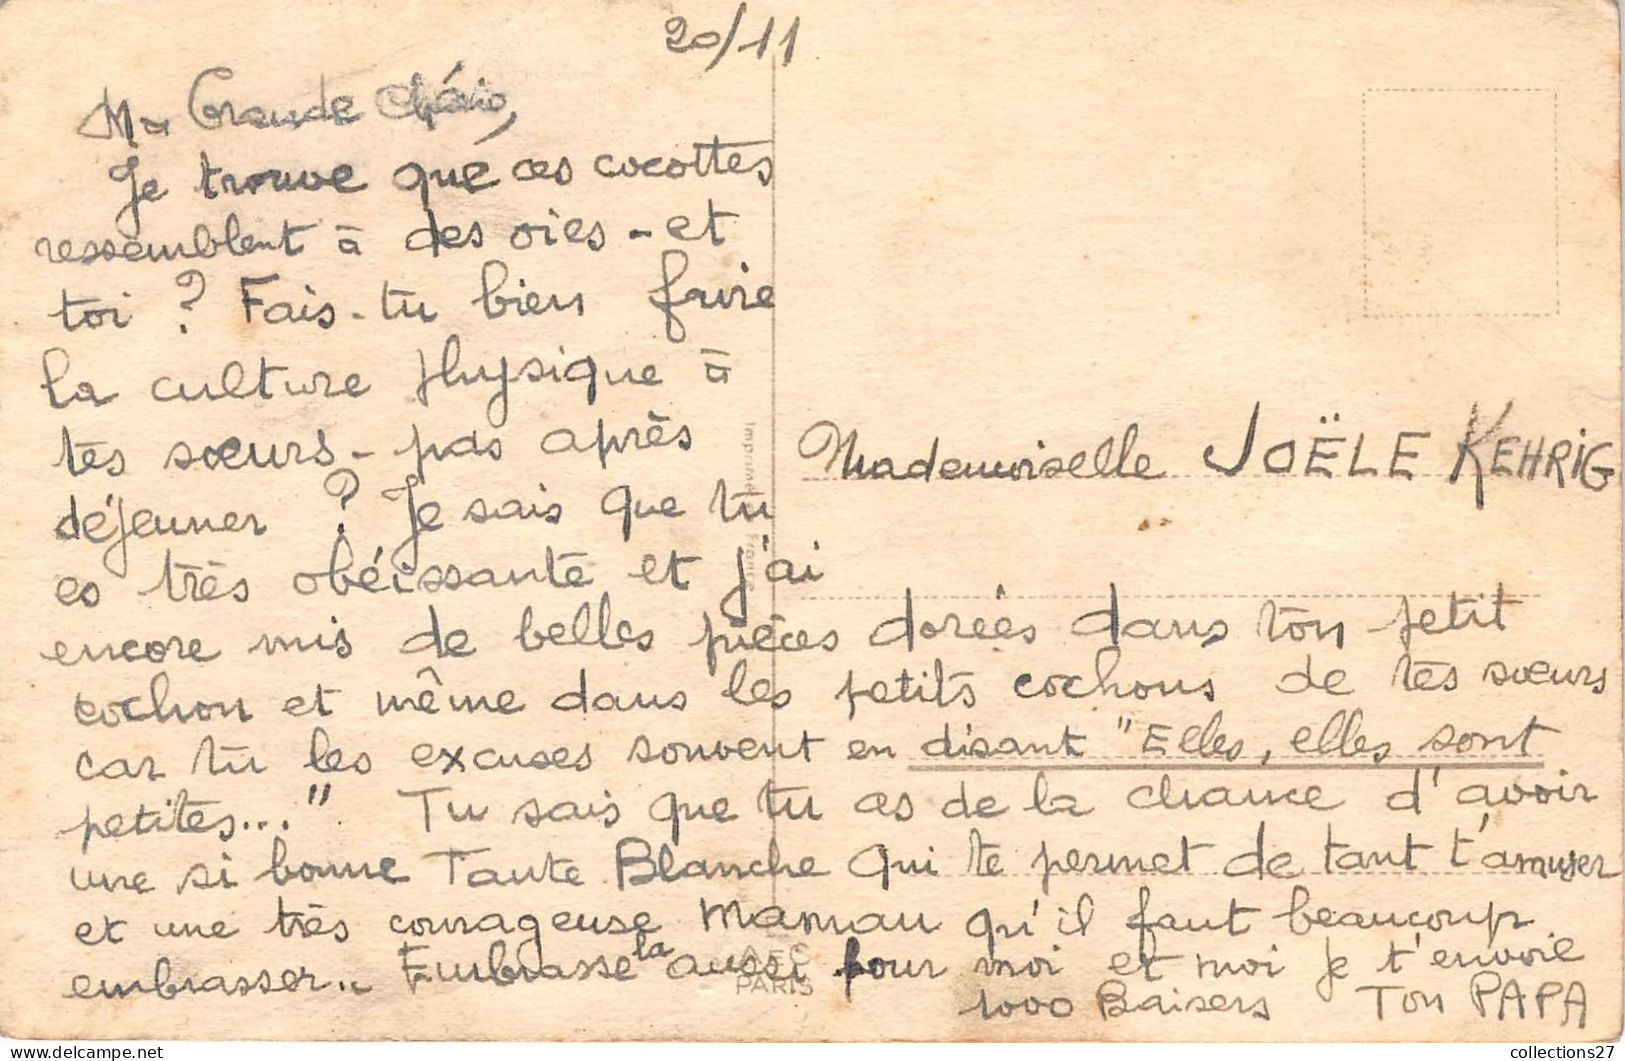 20/11
Ma Grande Chérie,
Je trouve que ces cocottes
ressemblent à des oies - et
toi ? Fais-tu bien faire
la culture physique à
tes sœurs - pas après
déjeuner ? Je sais que tu
es très obéissante et j'ai
encore mis de belles pièces dorées dans ton petit
cochon et même dans les petits cochons de tes sœurs
car tu les excuses souvent en disant "Elles, elles sont
petites..." Tu sais que tu as de la chance d'avoir
une si bonne Tante Blanche qui te permet de tant t'amuser
et une très courageuse Maman qu'il faut beaucoup
embrasser.. Embrasse la aussi pour moi et moi je t'envoie
1000 Baisers Ton PAPA
Mademoiselle JOËLE KEHRIG
Imprimé France
PARIS
collections27